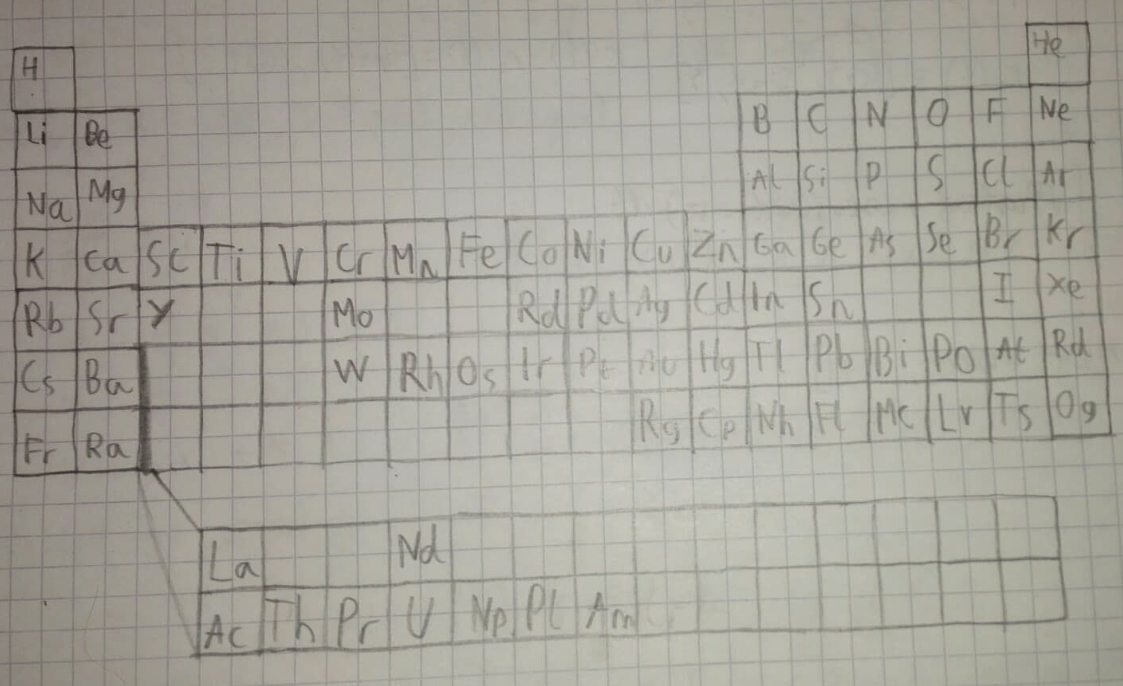 H He
Li Be B C N O F Ne
Na Mg Al Si P S Cl Ar
K Ca Sc Ti V Cr Mn Fe Co Ni Cu Zn Ga Ge As Se Br Kr
Rb Sr Y Mo Rd Pd Ag Cd In Sn I Xe
Cs Ba W Rh Os Ir Pt Au Hg Tl Pb Bi Po At Rd
Fr Ra Rg Cp Nh Fl Mc Lv Ts Og
La Nd
Ac Th Pr U Np Pl Am